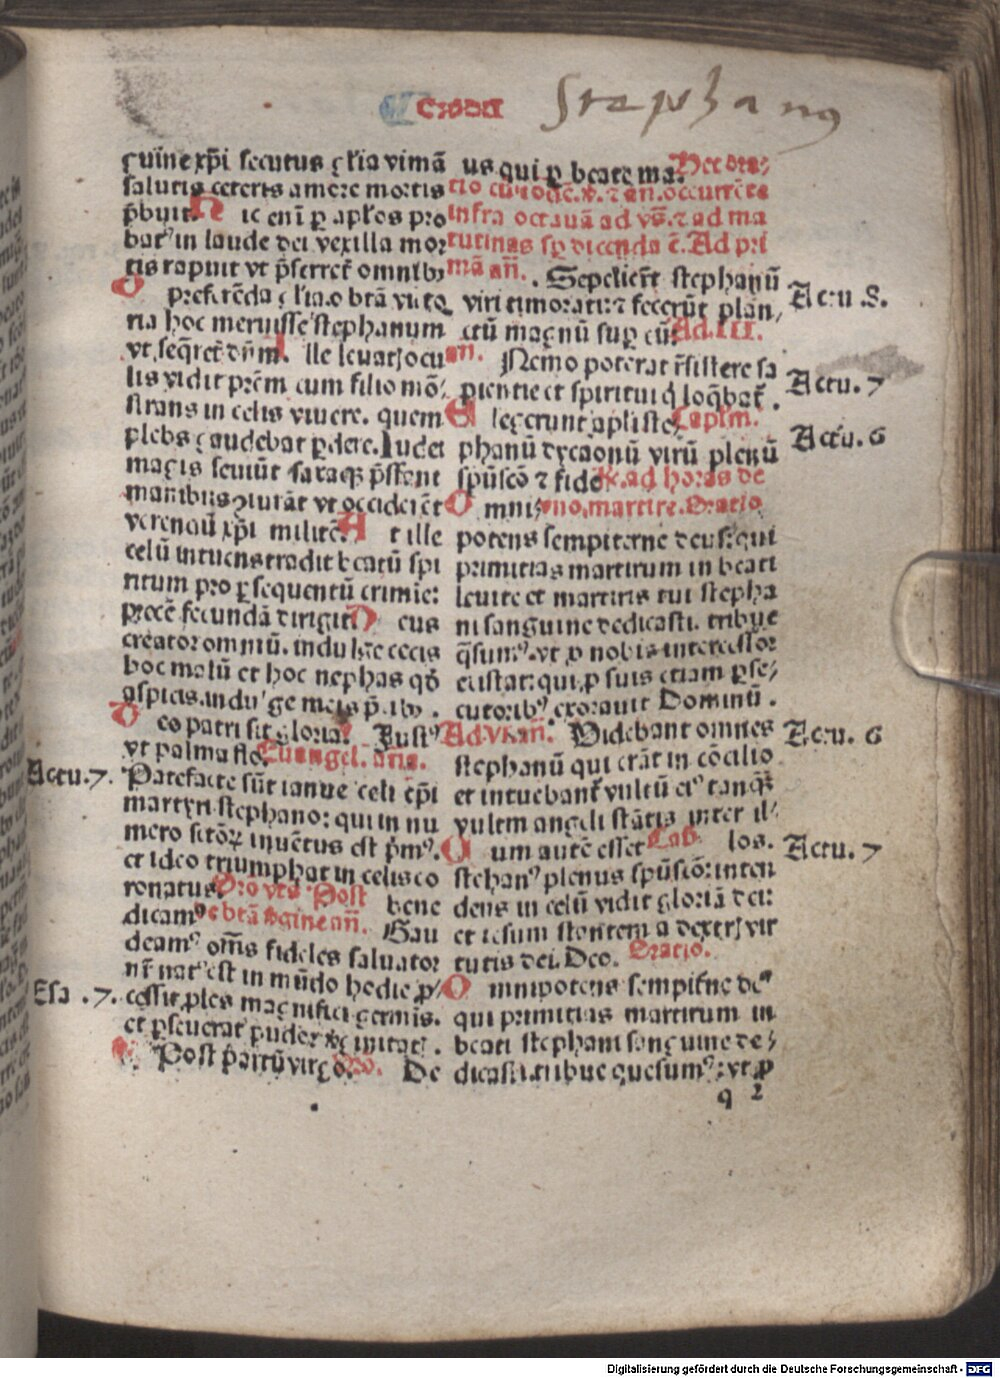 Stephanus
guine xp̄i secutus gl'ia vimā
salutis ceteris amore mortis
p̄buit. H ic eni ꝑ apl'os pro
bat' in laude dei vexilla mor
tis rapuit vt p̄ferret omnibꝫ
O preferēda gl'ia. o btā victo
ria hoc meruisse stephanum
vt seq̄ret dn̄m. I lle levat ocu
lis vidit prēm cum filio mō/
strans in celis vivere. quem
plebs gaudebat ꝑdere. Iudei
magis seviūt saxaqꝫ p̄ssant
manibus ꝯiurāt vt occiderēt
verendū xp̄i militē. A t ille
celū intuens tradit beatū spi
ritum pro ꝑsequentū crimie:
precē fecundā dirigit D eus
creator omniū. indulge cecis
hoc malū et hoc nephas qd̄
aspicis. indulge meis p̄cibꝫ.
D eo patri sit gloria. Iust'
vt palma flo. Euangel. an̄a.
Actu. 7. Patefacte sūt ianue celi xp̄i
martyri stephano: qui in nu
mero mr̄m inuētus est p̄m'.
et ideo triumphat in celis co
ronatus.
dicam' bene
Gau
deam' om̄s fideles saluator
nr̄ nat' est in mūdo hodie ꝓ/
Esa. 7. cessit ꝓles magnifici germis.
et ꝑseuerat pudor
Post partū virgo. De
us qui ꝑ beate ma. Hec ora/
infra octauā ad vs̄. ⁊ ad ma
tutinas sꝑ dicenda ē. Ad pri
mā an̄. Sepelierūt stephanū
viri timorati: ⁊ fecerūt plan/ Actu. 8.
ctū magnū suꝑ eū. Ad. III.
an. Nemo poterat r̄sistere sa
pientie et spiritui q̄ loq̄bat̄. Actu. 7
E legerunt apl'i ste/ Caplm.
phanū dyaconū virū plenū Actu. 6
spūscō ⁊ fide R. ad horas de
O mni/ vno martire. Oratio
potens sempiterne deus: qui
primitias martirum in beati
leuite et martiris tui stepha
ni sanguine dedicasti. tribue
q̄sum'. vt ꝓ nobis intercessor
existat: qui ꝓ suis etiam ꝑse/
cutoribꝰ exorauit Dominū.
Ad VI. an̄. Videbant omnes Actu. 6
stephanū qui erāt in cōcilio
et intuebant̄ vultū ei' tanqꝫ
vultm angeli stātis inter il/
C um autē esset Cap. los. Actu. 7
stehan' plenus spūscō: inten
dens in celū vidit gloriā dei:
et iesum stantem a dextrꝭ vir
tutis dei. Deo. Oratio.
O mnipotens sempit̄ne de'
qui primitias martirum in
beati stephani sanguine de/
dicasti. tribue quesum': vt ꝓ
q 2
Digitalisierung gefördert durch die Deutsche Forschungsgemeinschaft - DFG